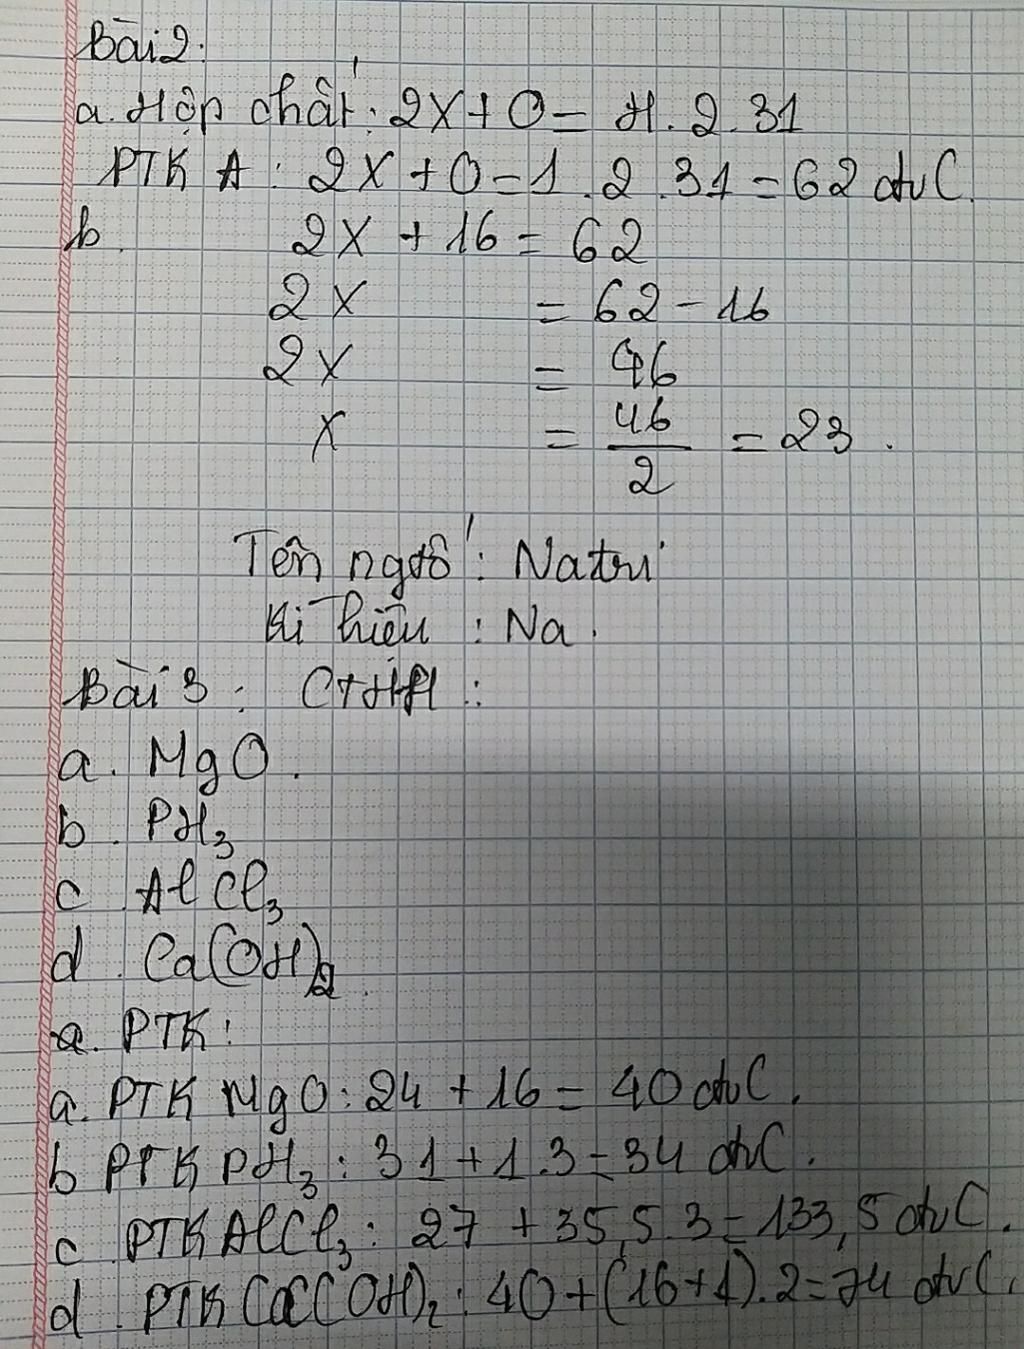 Bài 2:
a. Hợp chất: 2X + O = H. 2. 31
PTK A: 2X + O = 1 . 2 . 31 = 62 đvC.
b. 2X + 16 = 62
2X = 62 - 16
2X = 46
X = 46/2 = 23.
Tên ngtố: Natri
Kí hiệu: Na.
Bài 3: CTHH:
a. MgO.
b. PH₃
c AlCl₃
d. Ca(OH)₂.
a. PTK:
a. PTK MgO: 24 + 16 = 40 đvC.
b PTK PH₃: 31 + 1.3 = 34 đvC.
c. PTK AlCl₃: 27 + 35,5.3 = 133,5 đvC.
d. PTK Ca(OH)₂: 40 + (16+1).2 = 74 đvC.